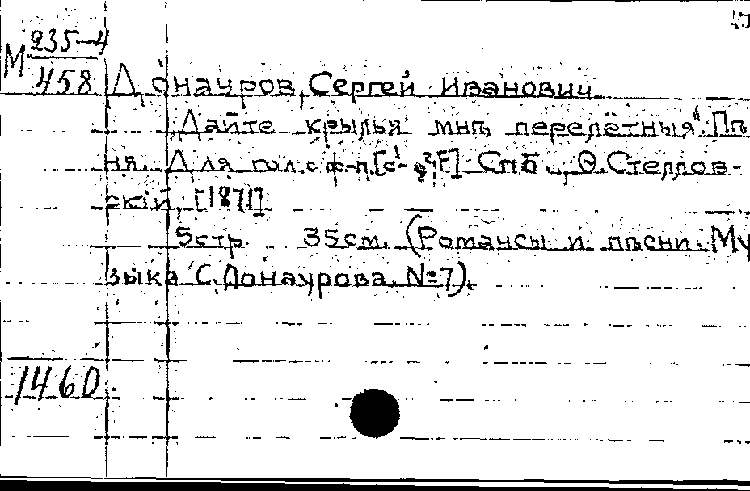 М 235-4
458
Донауров, Сергей Иванович
„Дайте крылья мнѣ перелётныя". Пѣс
ня. Для гол. с ф-п. [c¹- F] Спб., Ѳ. Стеллов-
скій, [1871]
5 стр. 35 см. (Романсы и пѣсни. Му
зыка С. Донаурова. № 7).
1460